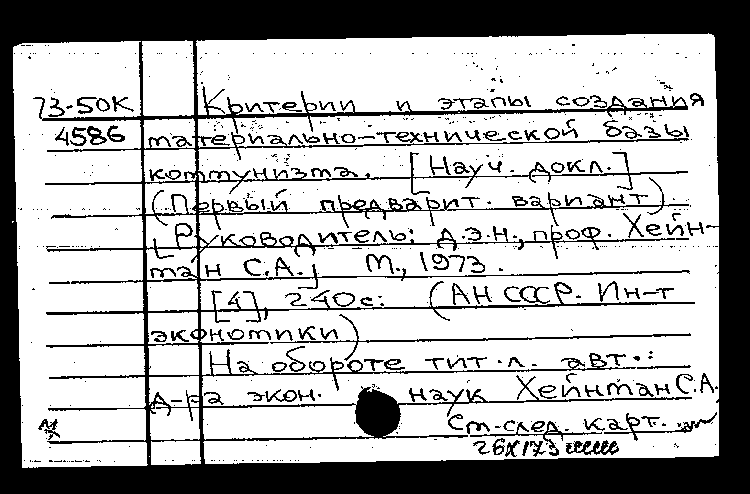 73-50К Критерии и этапы создания
4586 материально-технической базы
коммунизма. [Науч. докл.]
(Первый предварит. вариант)
[Руководитель: д.э.н., проф. Хейн-
ман С.А.] М., 1973.
[4], 240с. (АН СССР. Ин-т
экономики)
На обороте тит.л. авт.:
д-ра экон. наук Хейнман С.А.
См-след. карт.
26X173